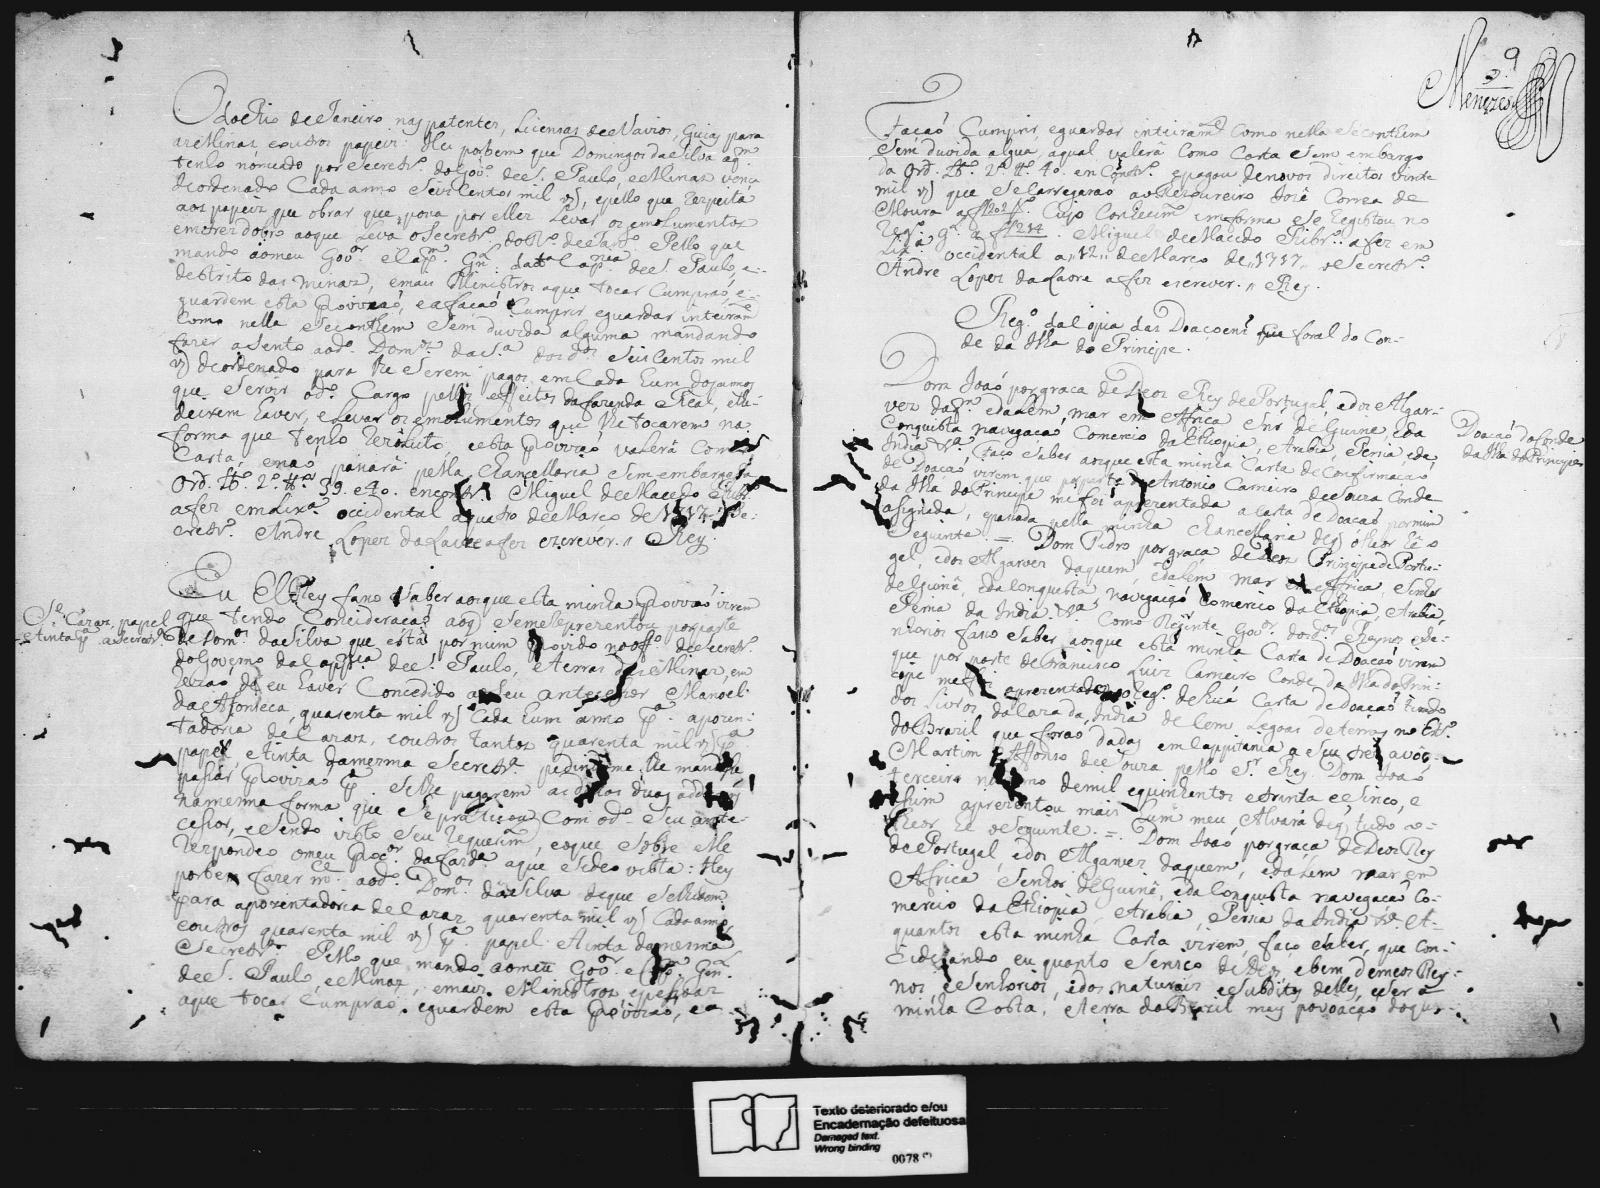 O do Rio de Janeiro nas patentes, Licensas de Navios, Guias para
as Minas, e outros papeis: Hey por bem que Domingos da Silva q̃
tenho nomeado por Secretr.º do Gov.º de S. Paulo, e Minas vença
de ordenado Cada anno Seis Centos mil rs, e pello que respeita
aos papeis que obrar que, possa por elles Levar os emolumentos
em tresdobro ao que Leva o Secretr.º do R.º de Jan.º Pello que
mando ao meu Gov.or e Cap.m G.n da Cap.nia de S. Paulo, e
destrito das Minas, e mais Ministros a que tocar Cumprão, e
guardem esta Provizaõ, e a façaõ Cumprir e guardar inteiram.te
Como nella Se conthem Sem duvida alguma mandando
fazer asento ao d.º Dom.os da S.a dos d.os Seis Centos mil
rs de ordenado para lhe Serem pagos em Cada hum dos annos
que Servir o d.º Cargo pellos effeitos da fazenda Real, e lhe
deixem haver, e Levar os emolumentos que lhe tocarem na
forma que tenho rezoluto, e esta Provizaõ valerá Como
Carta, e naõ passará pella Chancellaria Sem embargo da
Ord. L.º 2.º tt.º 39. e 40. em contr.º Miguel de Macedo Ribr.º
a fez em Lix.a occidental a quatro de Março de 1717. o Se-
cretr.º Andre Lopes da Lavre a fez escrever. // Rey.
Se. Cazas, papel
e tinta p.a a Secretr.a
Eu El Rey faço Saber aos que esta minha Provizaõ virem
que tendo Consideraçaõ ao q̃ Se me reprezentou por parte
de Dom.os da Silva que está por mim Provido no off.º de Secretr.º
do Governo da Capp.nia de S. Paulo, e terras das Minas, em
rezaõ de eu haver Concedido ao Seu antecessor Manoel
da Afonseca, quarenta mil rs Cada hum anno p.a apozen-
tadoria de Cazas, e outros tantos quarenta mil rs p.a
papel e tinta da mesma Secretr.a pedindome lhe mandasse
passar Provizaõ p.a Se lhe pagarem as ditas duas addiçoẽs
na mesma forma que Se praticou Com o d.º Seu ante-
cessor, e Sendo visto Seu requerim.to, e o que Sobre elle
respondeo o meu Proc.or da faz.da a que Se deo vista: Hey
por bem fazer m.ce ao d.º Dom.os da Silva de que Se lhe dem
para apozentadoria de Cazas quarenta mil rs Cada anno,
e outros quarenta mil rs p.a papel e tinta da mesma
Secretr.a Pello que mando ao meu Gov.or e Cap.m Gen.al
de S. Paulo, e Minas, e mais Ministros e pessoas
a que tocar Cumpraõ, e guardem esta Provizaõ, e a
9
Menezes
façaõ Cumprir, e guardar inteiram.te Como nella Se conthem
Sem duvida algua, a qual valerá Como Carta Sem embargo
da Ord. L.º 2.º tt.º 40. em Contr.º e pagou de novos direitos vinte
mil rs que Se Carregaraõ ao Thezoureiro Jozé Correa de
Moura a f 202 v.º Cujo Conhecim.to em forma Se Registou no
Reg.º g.l a f 214. Miguel de Macedo Ribr.º a fez em
Lix.a occidental a 12 de Março de 1717. o Secretr.º
Andre Lopes da Lavre a fez escrever. // Rey.
Reg.º da Copia das Doaçoens que foral do Con-
de da Ilha do Principe.
Doaçaõ do Conde
da Ilha do Principe
Dom Joaõ por graça de Deos Rey de Portugal, e dos Algar-
ves daq.m e dalém, mar em Africa Snr de Guine, e da
Conquista navegaçaõ Comercio da Ethiopia, Arabia, Persia, e da
India &.a Faço Saber aos que esta minha Carta de Confirmaçaõ
de Doaçaõ virem que por parte de Antonio Carneiro de Souza Conde
da Ilha do Principe me foi aprezentada a Carta de Doaçaõ por mim
asignada, e passada pella minha Chancellaria de q̃ o theor hé o
Seguinte. = Dom Pedro por graça de Deos Principe de Portu-
gal, e dos Algarves daquem, e dalém mar em Africa, e Senhor
de Guiné, e da Conquista navegaçaõ Comercio da Ethiopia, Arabia,
Persia da India &.a Como Regente Gov.or dos d.os Reynos e Se-
nhorios faço Saber aos que esta minha Carta de Doaçaõ virem
que por parte de Francisco Luis Carneiro Conde da Ilha do Prin-
cipe me foi aprezentada o Reg.º de huã Carta de Doaçaõ tirado
dos Livros da Caza da India de Cem Legoas de terras no Est.º
do Brazil que foraõ dadas em Cappitania a Seu tresavó
Martim Affonso de Souza pello S.r Rey Dom Joaõ
terceiro no anno de mil equinhentos e trinta e Sinco, e
assim aprezentou mais hum meu, Alvará de q̃, tudo o
theor hé o Seguinte. = Dom Joaõ por graça de Deos Rey
de Portugal, e dos Algarves daquem, e dalém mar em
Africa Senhor de Guiné, e da Conquista navegaçaõ Co-
mercio da Ethiopia, Arabia, Persia da India &.a A-
quantos esta minha Carta virem, faço Saber, que Con-
Ciderando eu quanto Serviço de Deos, e bem, de meos Rey-
nos e Senhorios, e dos naturais e Subditos delles, e Ser a
minha Costa, e terra do Brazil mais povoaçaõ do que
Texto deteriorado e/ou
Encadernação defeituosa
Damaged text.
Wrong binding
0078